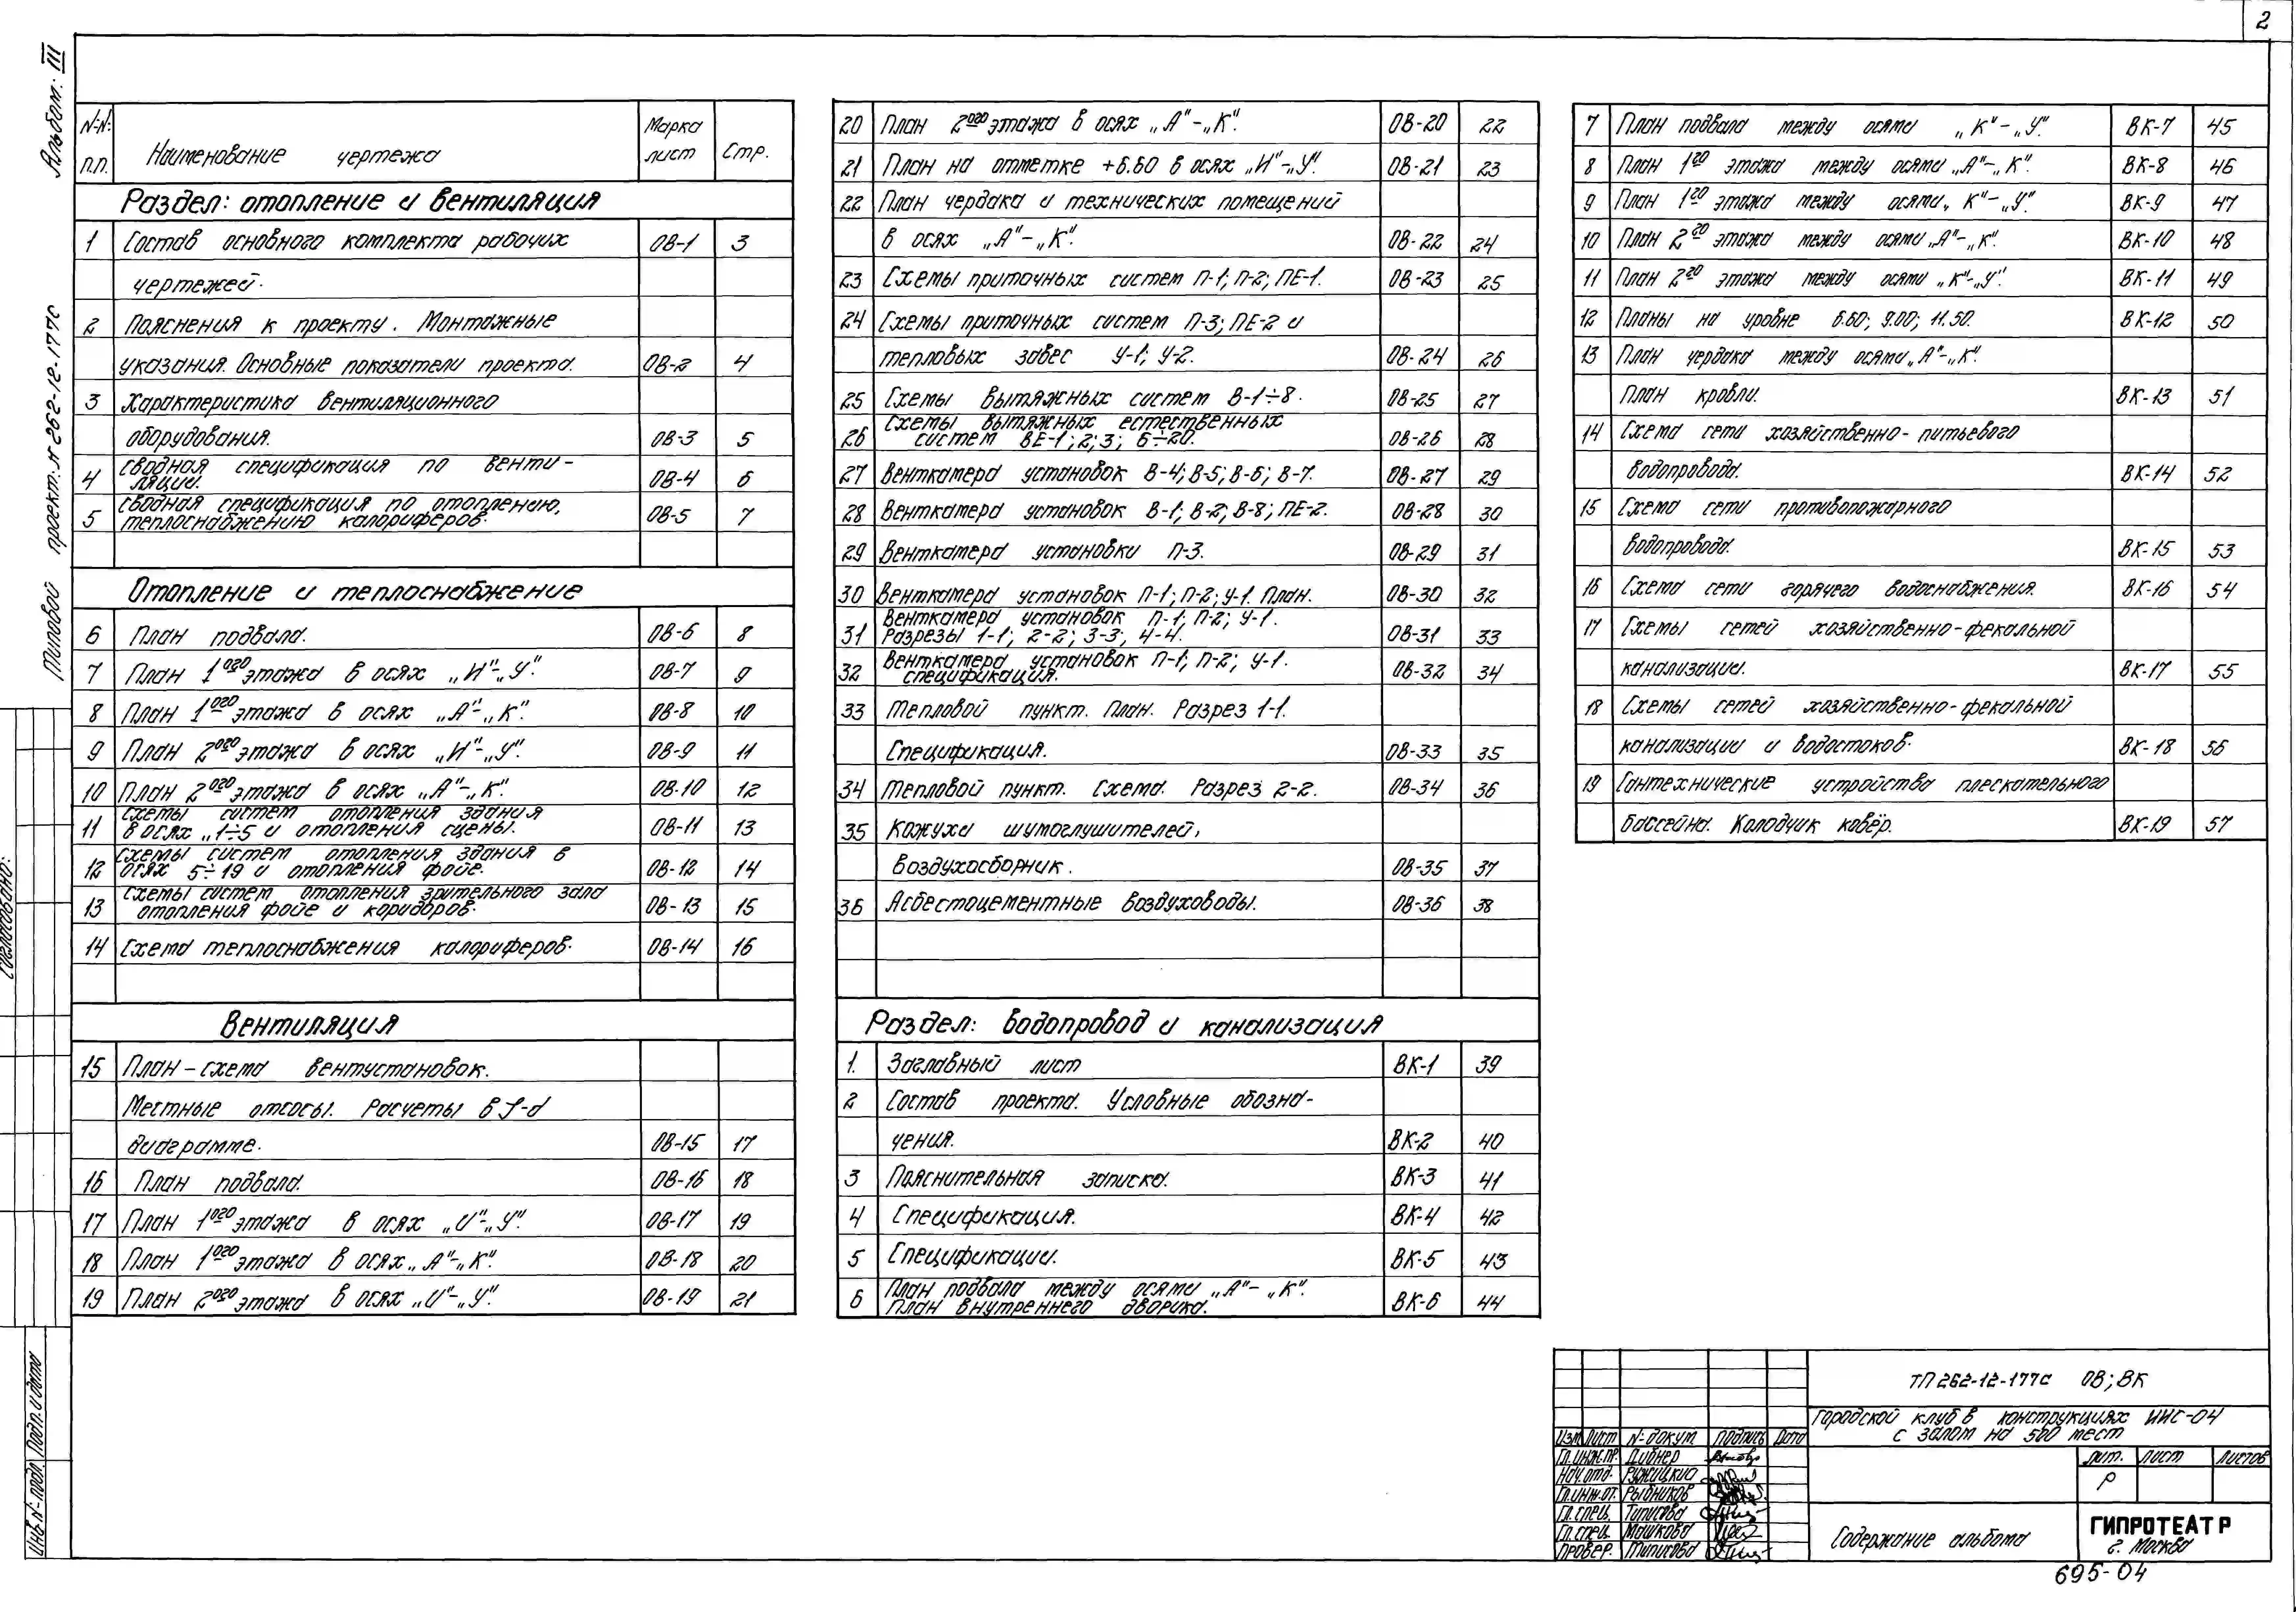 2
Альбом: III
Типовой проект: N 262-12-177С
N-N: п.п. Наименование чертежа Марка лист Стр.
Раздел: отопление и вентиляция
1 Состав основного комплекта рабочих ОВ-1 3
чертежей.
2 Пояснения к проекту. Монтажные
указания. Основные показатели проекта. ОВ-2 4
3 Характеристика вентиляционного
оборудования. ОВ-3 5
4 Сводная спецификация по венти-
ляции. ОВ-4 6
5 Сводная спецификация по отоплению,
теплоснабжению калориферов. ОВ-5 7
Отопление и теплоснабжение
6 План подвала. ОВ-6 8
7 План 1ого этажа в осях „И"-„У". ОВ-7 9
8 План 1ого этажа в осях „А"-„К". ОВ-8 10
9 План 2ого этажа в осях „И"-„У". ОВ-9 11
10 План 2ого этажа в осях „А"-„К". ОВ-10 12
11 Схемы систем отопления здания
в осях „1÷5 и отопления сцены. ОВ-11 13
12 Схемы систем отопления здания в
осях 5÷19 и отопления фойе. ОВ-12 14
13 Схемы систем отопления зрительного зала
отопления фойе и коридоров. ОВ-13 15
14 Схема теплоснабжения калориферов. ОВ-14 16
Вентиляция
15 План-схема вентустановок.
Местные отсосы. Расчеты в J-d
диаграмме. ОВ-15 17
16 План подвала. ОВ-16 18
17 План 1ого этажа в осях „И"-„У". ОВ-17 19
18 План 1ого этажа в осях „А"-„К". ОВ-18 20
19 План 2ого этажа в осях „И"-„У". ОВ-19 21
20 План 2ого этажа в осях „А"-„К". ОВ-20 22
21 План на отметке +6.60 в осях „И"-„У". ОВ-21 23
22 План чердака и технических помещений
в осях „А"-„К". ОВ-22 24
23 Схемы приточных систем П-1; П-2; ПЕ-1. ОВ-23 25
24 Схемы приточных систем П-3; ПЕ-2 и
тепловых завес У-1; У-2. ОВ-24 26
25 Схемы вытяжных систем В-1÷8. ОВ-25 27
26 Схемы вытяжных естественных
систем ВЕ-1; 2; 3; 6÷20. ОВ-26 28
27 Венткамера установок В-4; В-5; В-6; В-7. ОВ-27 29
28 Венткамера установок В-1; В-2; В-8; ПЕ-2. ОВ-28 30
29 Венткамера установки П-3. ОВ-29 31
30 Венткамера установок П-1; П-2; У-1. План. ОВ-30 32
31 Венткамера установок П-1; П-2; У-1.
Разрезы 1-1; 2-2; 3-3, 4-4. ОВ-31 33
32 Венткамера установок П-1; П-2; У-1.
спецификация. ОВ-32 34
33 Тепловой пункт. План. Разрез 1-1.
Спецификация. ОВ-33 35
34 Тепловой пункт. Схема. Разрез 2-2. ОВ-34 36
35 Кожуха шумоглушителей,
Воздухосборник. ОВ-35 37
36 Асбестоцементные воздуховоды. ОВ-36 38
Раздел: водопровод и канализация
1. Заглавный лист ВК-1 39
2 Состав проекта. Условные обозна-
чения. ВК-2 40
3 Пояснительная записка. ВК-3 41
4 Спецификация. ВК-4 42
5 Спецификации. ВК-5 43
6 План подвала между осями „А"-„К".
План внутреннего дворика. ВК-6 44
7 План подвала между осями „К"-„У". ВК-7 45
8 План 1го этажа между осями „А"-„К". ВК-8 46
9 План 1го этажа между осями „К"-„У". ВК-9 47
10 План 2го этажа между осями „А"-„К". ВК-10 48
11 План 2го этажа между осями „К"-„У". ВК-11 49
12 Планы на уровне 6.60; 9.00; 11.50. ВК-12 50
13 План чердака между осями „А"-„К".
План кровли. ВК-13 51
14 Схема сети хозяйственно-питьевого
водопровода. ВК-14 52
15 Схема сети противопожарного
водопровода. ВК-15 53
16 Схема сети горячего водоснабжения. ВК-16 54
17 Схемы сетей хозяйственно-фекальной
канализации. ВК-17 55
18 Схемы сетей хозяйственно-фекальной
канализации и водостоков. ВК-18 56
19 Сантехнические устройства плескательного
бассейна. Колодчик ковёр. ВК-19 57
Согласовано:
Инв N-подл. Подп. и дата
ТП 262-12-177С ОВ; ВК
Городской клуб в конструкциях ИИС-04
с залом на 500 мест
Изм Лист N-докум. Подпись Дата
Гл.инж.пр. Дибнер
Нач.отд. Ружицкий
Гл.инж.от. Рыбников
Гл.спец. Типисова
Гл.спец. Машкова
Провер. Типисова
Лит. Лист Листов
Р
Содержание альбома
ГИПРОТЕАТР
г. Москва
695-04